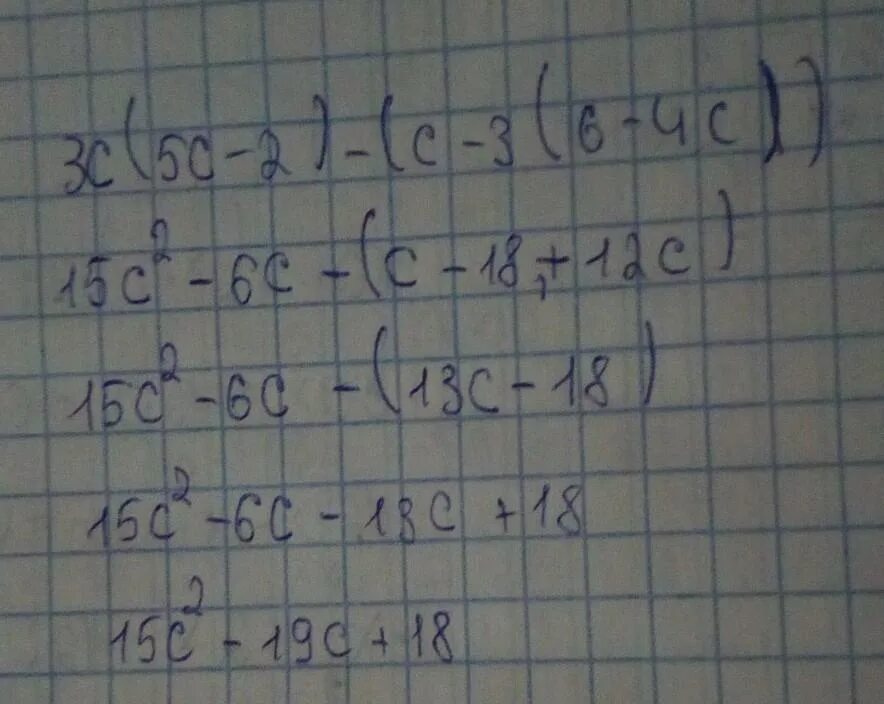 3c(5c-2)-(c-3(6-4c))
15c²-6c-(c-18+12c)
15c²-6c-(13c-18)
15c²-6c-13c+18
15c²-19c+18